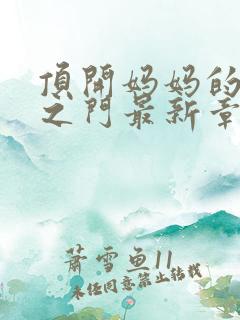 頂開妈妈的
之门最新章
萧雪鱼11
未经同意禁止转载